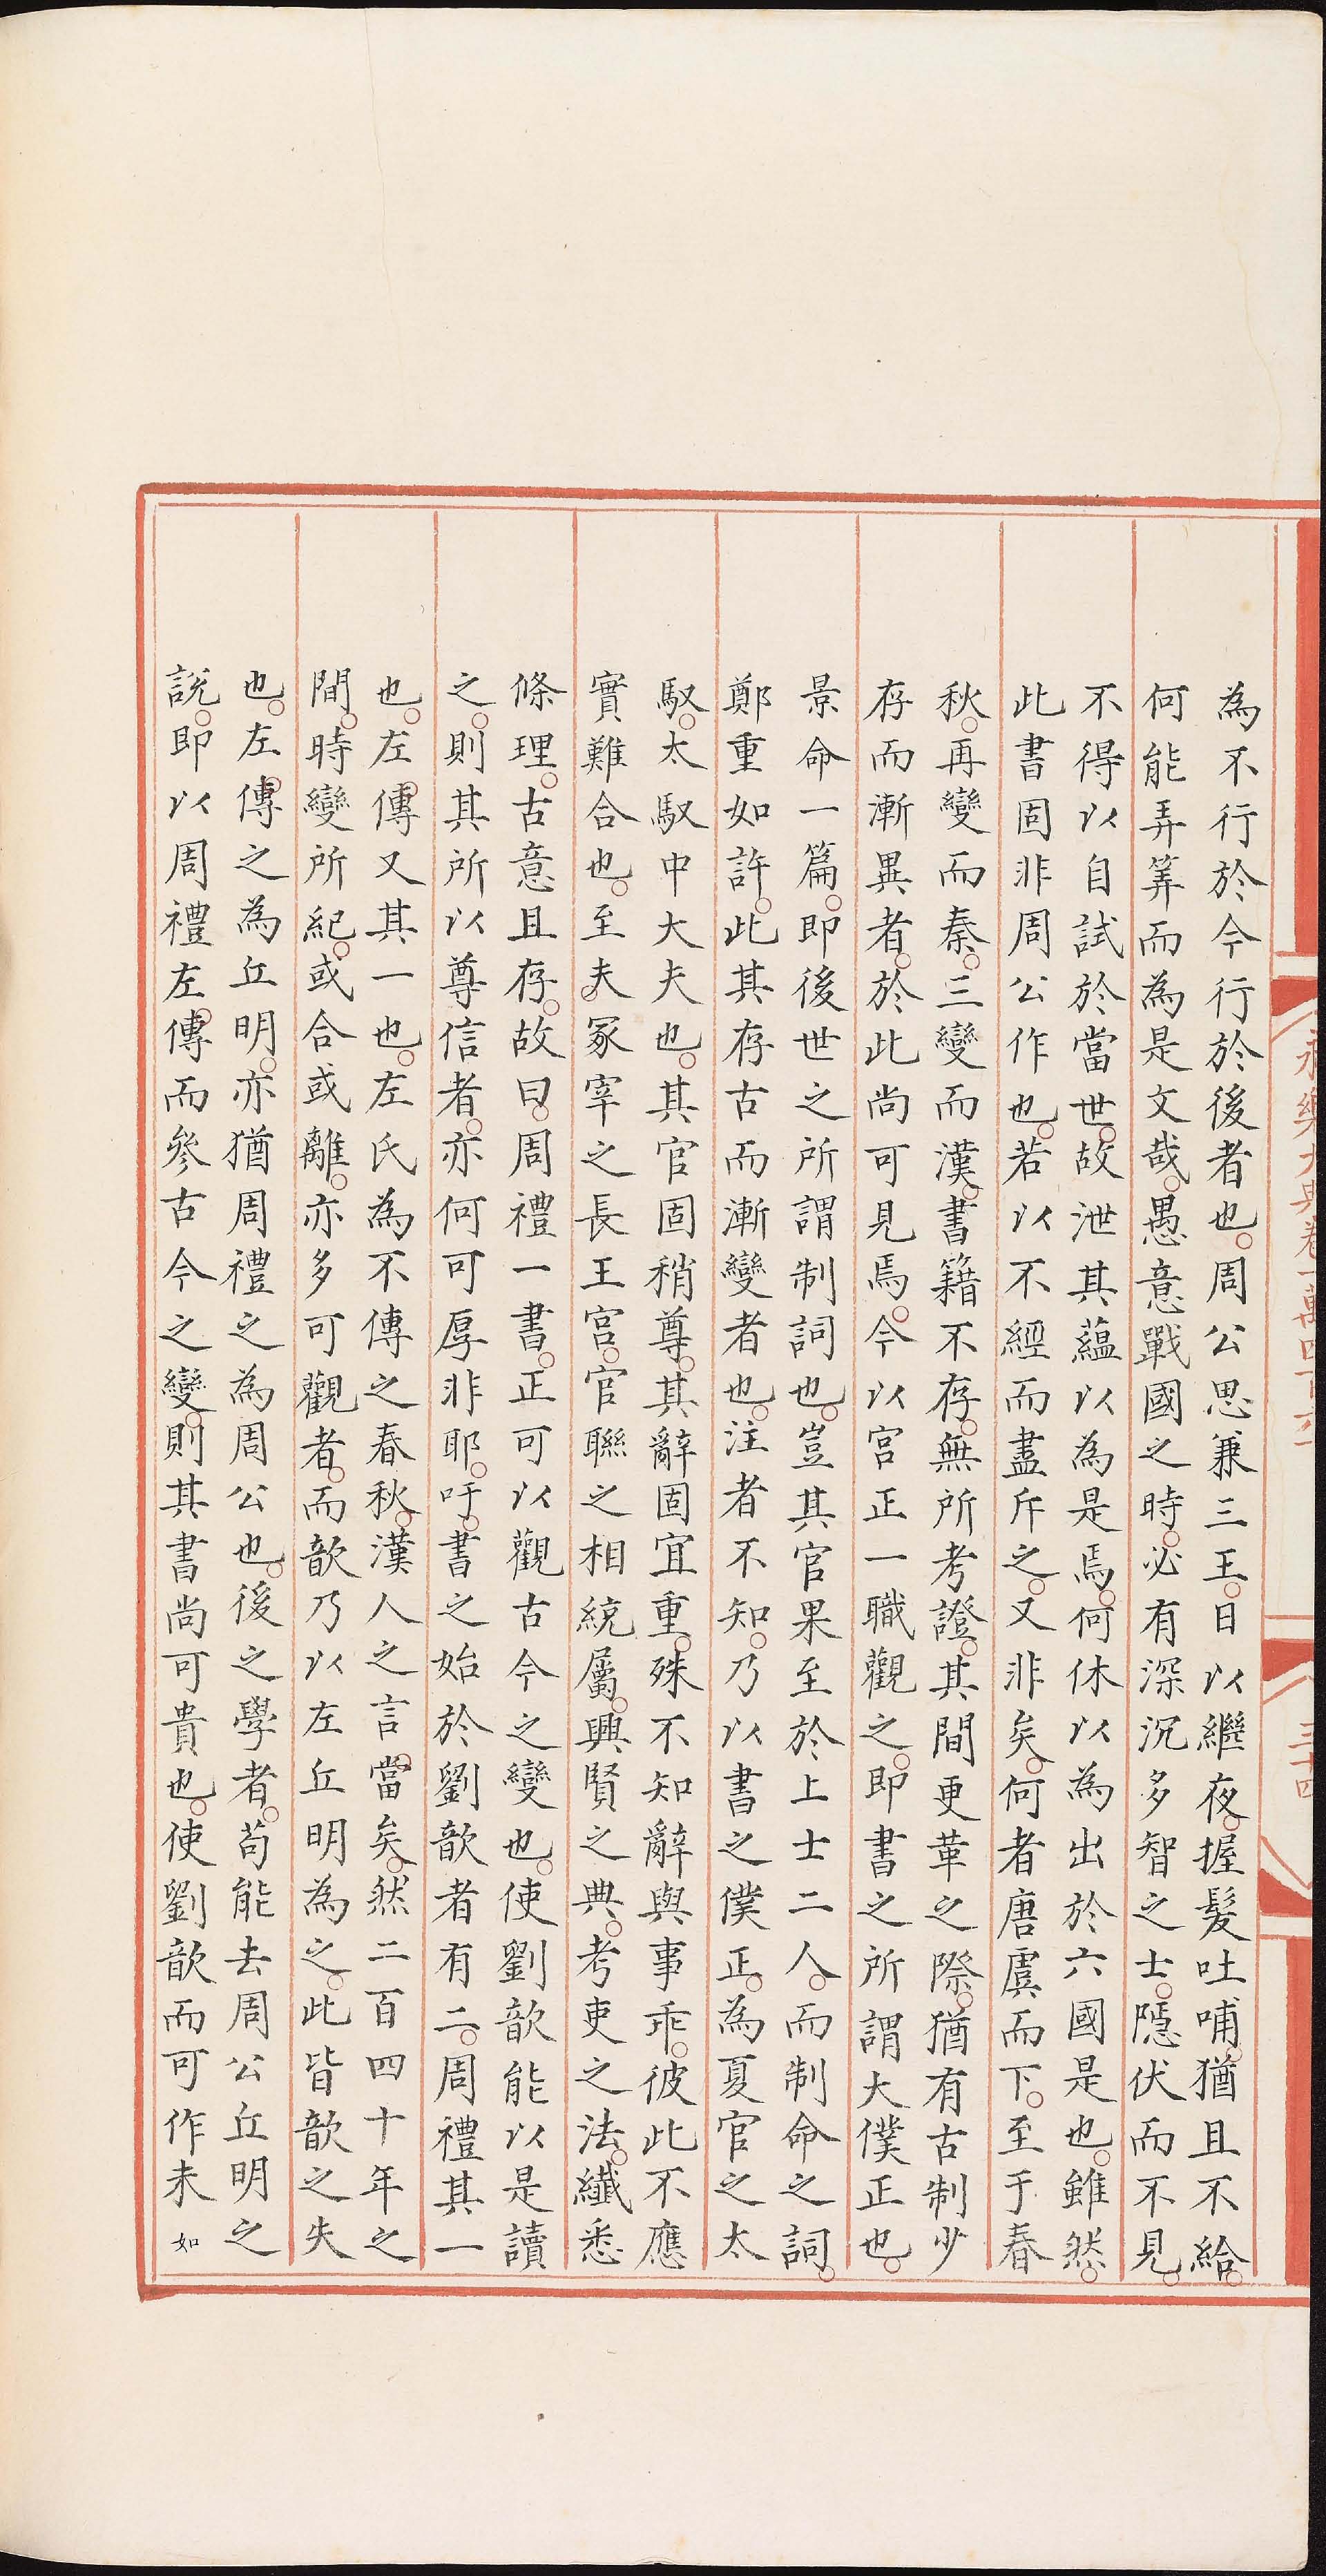 為不行於今行於後者也周公思兼三王日以繼夜握髮吐哺猶且不給
何能弄筭而為是文哉愚意戰國之時必有深沉多智之士隱伏而不見
不得以自試於當世故泄其蘊以為是焉何休以為出於六國是也雖然
此書固非周公作也若以不經而盡斥之又非矣何者唐虞而下至于春
秋再變而秦三變而漢書籍不存無所考證其間更革之際猶有古制少
存而漸異者於此尚可見焉今以宮正一職觀之即書之所謂大僕正也
景命一篇即後世之所謂制詞也豈其官果至於上士二人而制命之詞
鄭重如許此其存古而漸變者也注者不知乃以書之僕正為夏官之太
馭太馭中大夫也其官固稍尊其辭固宜重殊不知辭與事乖彼此不應
實難合也至夫冢宰之長王宮官聯之相統屬興賢之典考吏之法纖悉
條理古意且存故曰周禮一書正可以觀古今之變也使劉歆能以是讀
之則其所以尊信者亦何可厚非耶吁書之始於劉歆者有二周禮其一
也左傳又其一也左氏為不傳之春秋漢人之言當矣然二百四十年之
間時變所紀或合或離亦多可觀者而歆乃以左丘明為之此皆歆之失
也左傳之為丘明亦猶周禮之為周公也後之學者苟能去周公丘明之
說即以周禮左傳而參古今之變則其書尚可貴也使劉歆而可作未如
永樂大典卷一萬四百六十
三十四